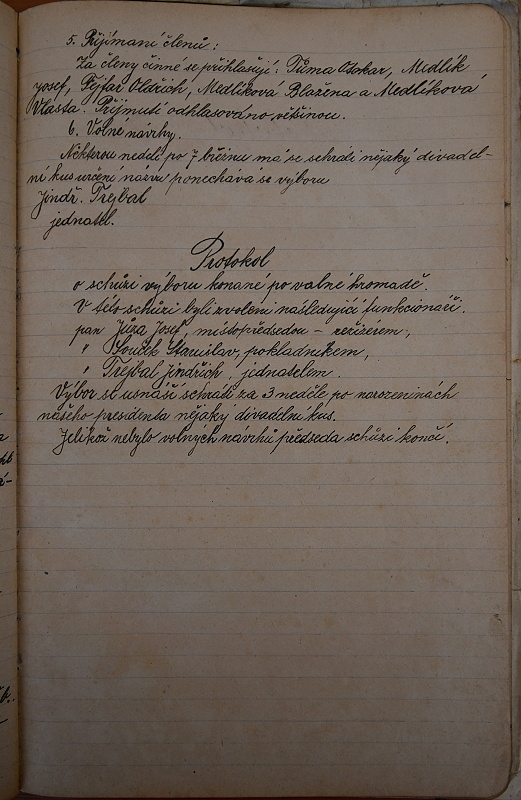 5. Přijímaní členů:
Za členy činné se přihlašují: Tůma Otokar, Medlík
Josef, Fejfar Oldřich, Medlíková Blažena a Medlíková
Vlasta. Přijmutí odhlasováno většinou.
6. Volné návrhy.
Některou neděli po 7 březnu má se sehráti nějaký divadel-
ní kus určení názvu ponechává se výboru
Jindř. Trejbal
jednatel.
Protokol
o schůzi výboru konané po valné hromadě.
V této schůzi byli zvoleni následující funkcionáři.
pan Jůza Josef, místopředsedou – režizérem,
" Souček Stanislav, pokladníkem,
" Trejbal Jindřich, jednatelem.
Výbor se usnáší sehráti za 3 neděle po narozeninách
našeho presidenta nějaký divadelní kus.
Jelikož nebylo volných návrhů předseda schůzi končí.